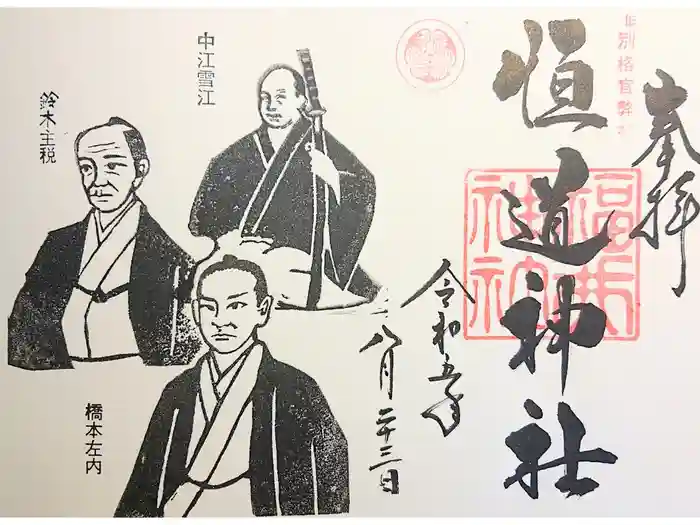 奉拝
別格官幣社
恒道神社
福井神社
令和五年
八月二十三日
中江雪江
鈴木主税
橋本左内